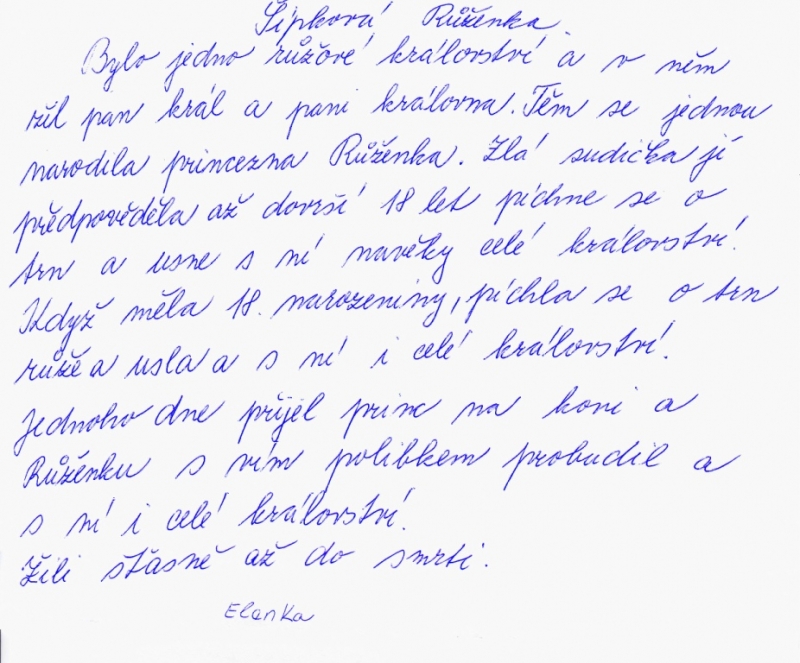 Šípková Růženka.
Bylo jedno růžové království a v něm
žil pan král a paní královna. Těm se jednou
narodila princezna Růženka. Zlá sudička jí
předpověděla až dovrší 18 let píchne se o
trn a usne s ní navěky celé království.
Když měla 18. narozeniny, píchla se o trn
růže a usla a s ní i celé království.
Jednoho dne přijel princ na koni a
Růženku s vím polibkem probudil a
s ní i celé království.
Žili štasně až do smrti.
Elenka